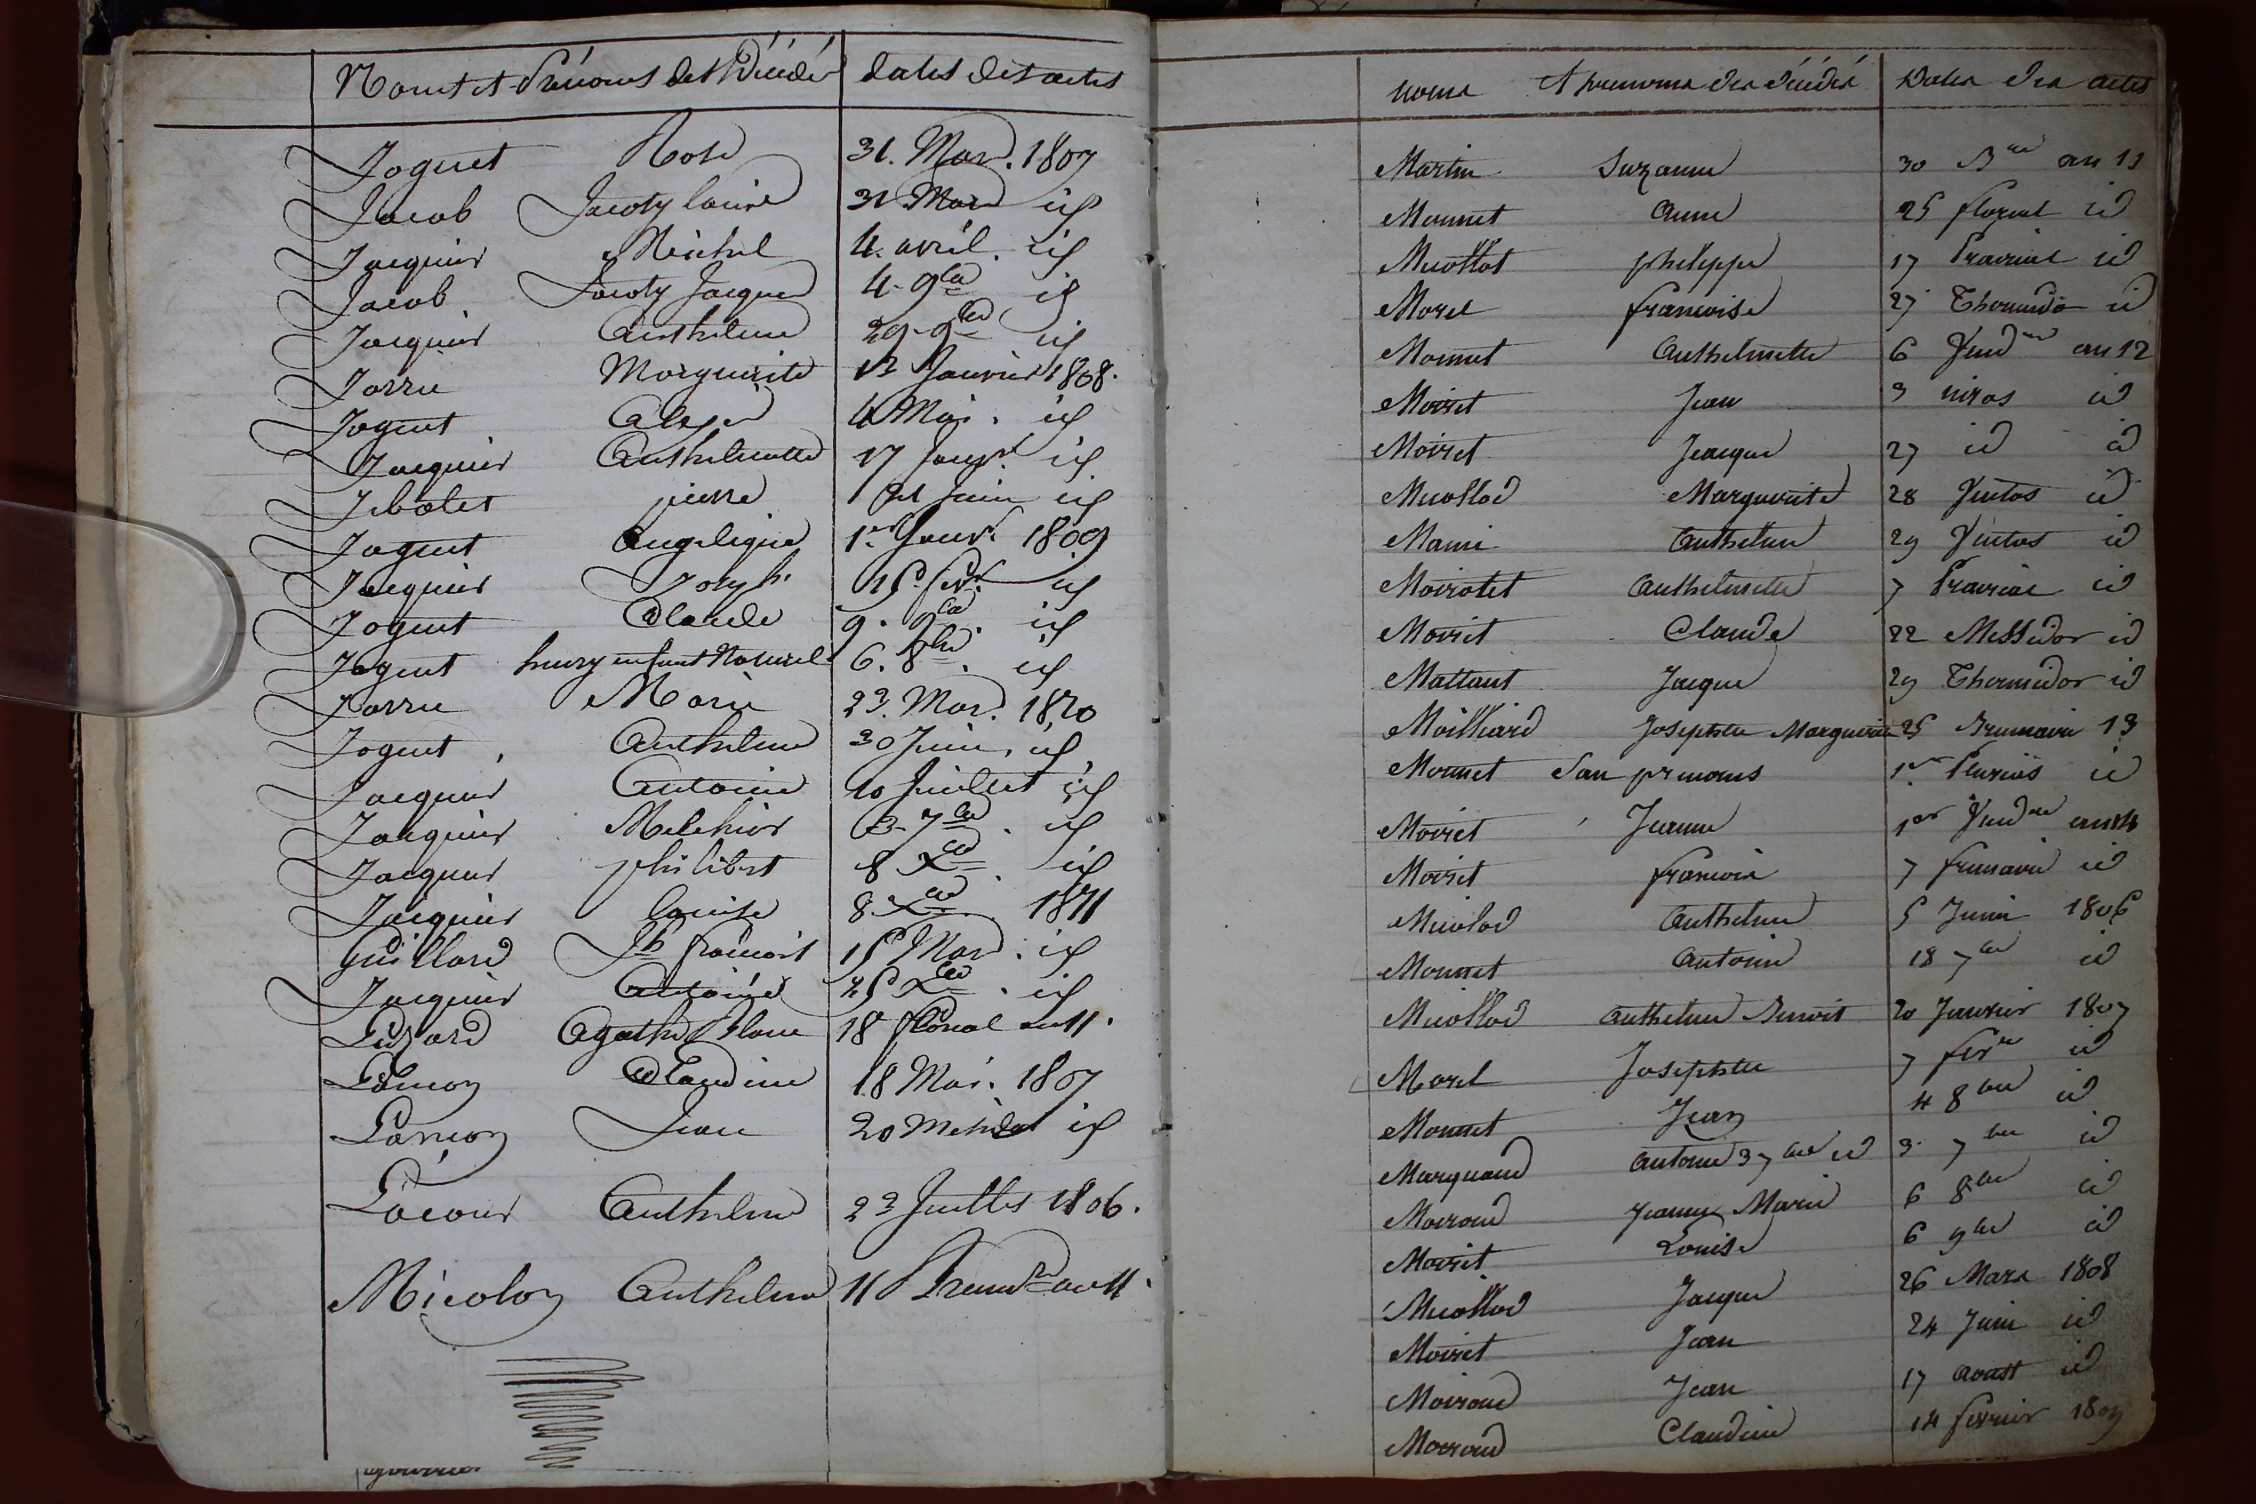 Noms et Prénoms des Décédés dates des actes
Joguet Rose 31. Mars. 1807
Jacob Jacoty louise 31 Mars id
Jacquier Michel 4. avril. id
Jacob Jacoty Jacques 4. 9bre id
Jacquier Anthelme 29. 9bre id
Jarrie Marguerite 12 Janvier 1808.
Joguet 4 Mai. id
Jacquier Anthelmette 17 id
pierre 21 Juin id
Joguet Angelique 1er Janvr 1809
Jacquier Joseph 15 fevr id
Joguet Claude 9. 9bre. id
Joguet henry enfant Naturel 6. 8bre. id
Jarrie Marie 23. Mars. 1810
Joguet, Anthelme 30 Juin. id
Jacquier Antoine 10 Juillet id
Jacquier Melchior 3. 7bre. id
Jacquier philibert 8 Xbre. id
Jacquier louise 8. Xbre. 1811
Guillard Jh francois 15 Mars. id
Jacquier Antoine 25 Xbre. id
Agathe Blanc 18 floreal an 11.
Claudine 18 Mai. 1807
Jean 20 Messidor id
Lacour Anthelme 23 Juillet 1806.
Micolon Anthelme 11 an 11.
noms et prenoms des décédés Dates des actes
Martin Suzanne 30 Bre an 11
Monnet Anne 25 floreal id
Micollod philippe 17 Prairial id
Morel francoise 27 Thermidor id
Monnet Anthelmette 6 Vendre an 12
Moiret Jean 3 nivos id
Moiret Jacque 27 id id
Micollod Marguerite 28 Ventos id
Anthelme 29 Ventos id
Anthelmette 7 Prairial id
Moiret Claude 22 Messidor id
Mattant Jacque 29 Thermidor id
Mailliard Josephte Marguerite 25 Brumaire 13
Monnet San prenoms 1er Pluvios id
Moiret Jeanne 1er Vendre an 14
Moiret francois 7 frimaire id
Micolod Anthelme 5 Juin 1806
Monnet Antoine 18 7bre id
Micollod Anthelme Benoit 20 Janvier 1807
Morel Josephte 7 fevre id
Monnet Jean 4 8bre id
Marquand Antoine 3 7bre id 3. 7bre id
Moiroud Jeanne Marie 6 8bre id
Moiret Louise 6 9bre id
Micollod Jacque 26 Mars 1808
Moiret Jean 24 Juin id
Moiroud Jean 17 Aoust id
Moiroud Claudine 14 fevrier 1809